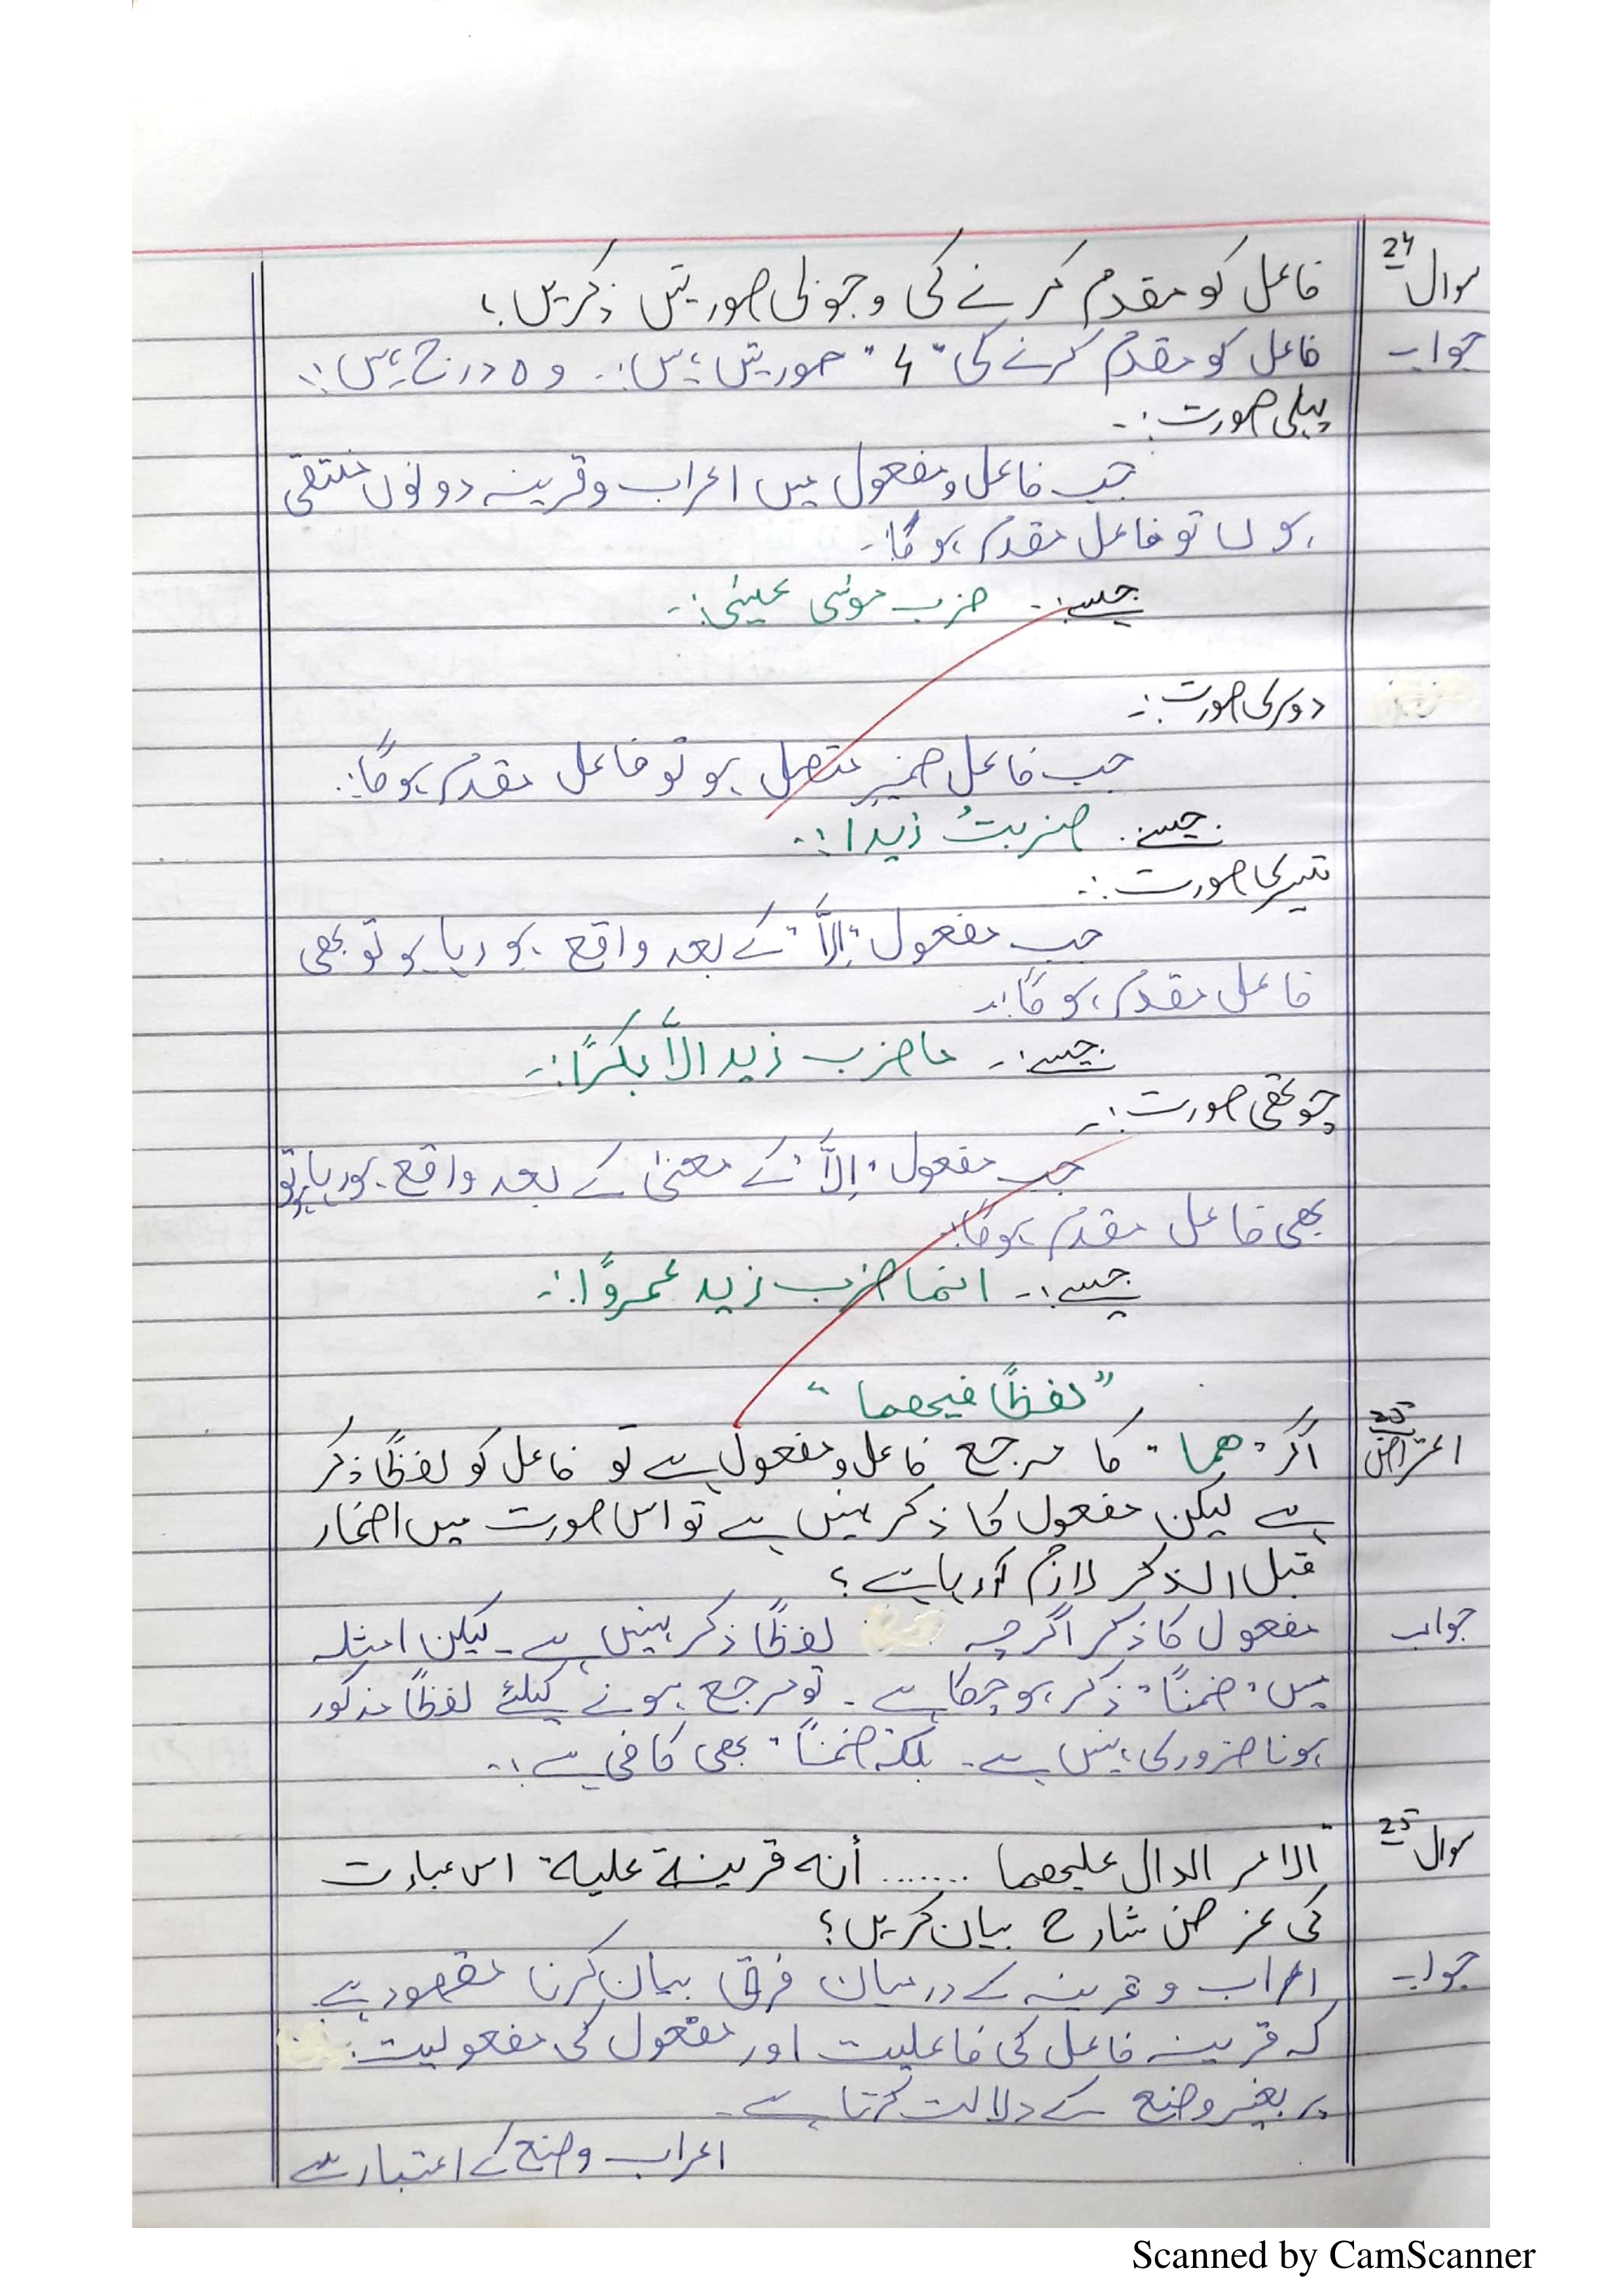 سوال 24 فاعل کو مقدم کرنے کی وجوبی صورتیں ذکر کریں؟
جواب فاعل کو مقدم کرنے کی "4" صورتیں ہیں:۔ وہ درج ہیں:۔
پہلی صورت:۔
جب فاعل و مفعول میں اعراب و قرینہ دونوں منتفی
ہوں تو فاعل مقدم ہوگا:۔
جیسے:۔ ضرب موسٰی عیسٰی:۔
دوسری صورت:۔
جب فاعل ضمیر متصل ہو تو فاعل مقدم ہوگا:۔
جیسے:۔ ضربتُ زیدا:۔
تیسری صورت:۔
جب مفعول "اِلَّا" کے بعد واقع ہو رہا ہو تو بھی
فاعل مقدم ہوگا:۔
جیسے:۔ ما ضرب زید الَّا بکرًا:۔
چوتھی صورت:۔
جب مفعول "اِلَّا" کے معنیٰ کے بعد واقع ہو رہا ہو تو
بھی فاعل مقدم ہوگا:۔
جیسے:۔ انما ضرب زید عمروًا:۔
"لفظًا فیھما"
اعتراض 25 اگر "ھما" کا مرجع فاعل و مفعول ہے تو فاعل کو لفظًا ذکر
ہے لیکن مفعول کا ذکر نہیں ہے تو اس صورت میں اضمار
قبل الذکر لازم آرہا ہے؟
جواب مفعول کا ذکر اگرچہ لفظًا ذکر نہیں ہے۔ لیکن امثلہ
میں "ضمنًا" ذکر ہوچکا ہے۔ تو مرجع ہونے کیلئے لفظًا مذکور
ہونا ضروری نہیں ہے۔ بلکہ "ضمنًا" بھی کافی ہے:۔
سوال 25 "الامر الدال علیھما ....... أنه قرینة علیه" اس عبارت
کی غرض شارح بیان کریں؟
جواب اعراب و قرینہ کے درمیان فرق بیان کرنا مقصود ہے
کہ قرینہ فاعل کی فاعلیت اور مفعول کی مفعولیت
پر بغیر وضع کے دلالت کرتا ہے۔
اعراب وضع کے اعتبار سے
Scanned by CamScanner